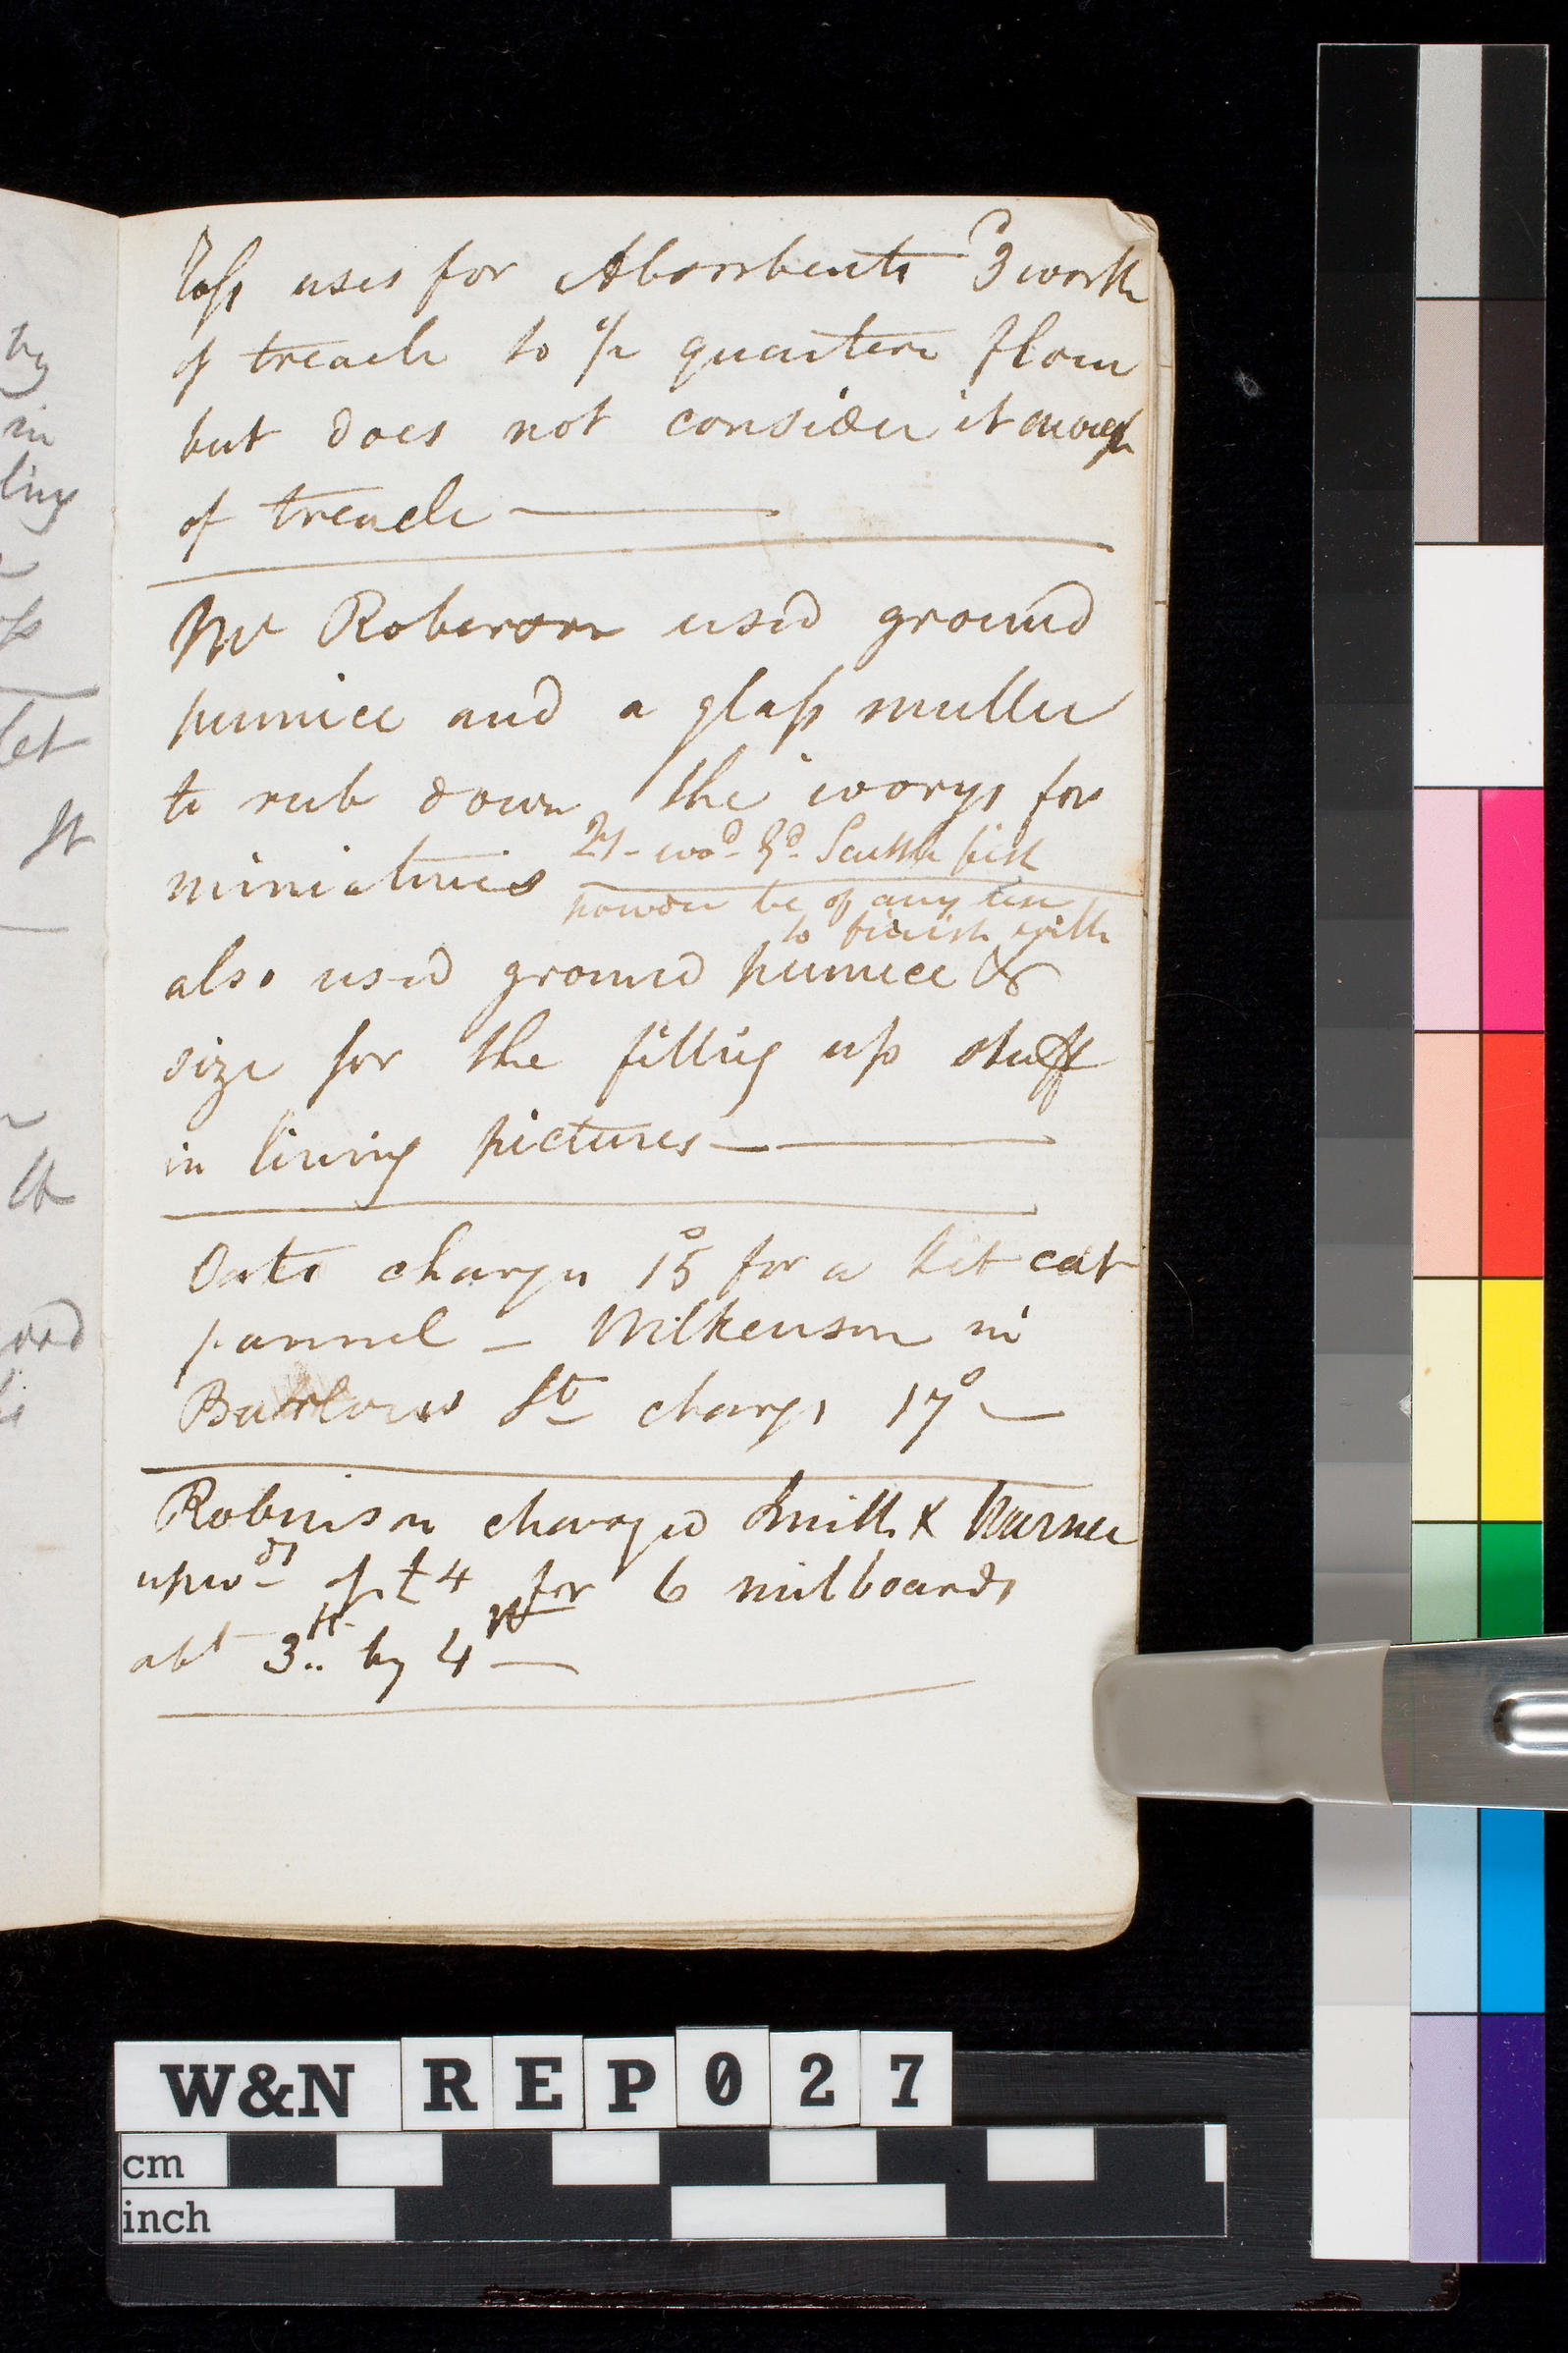 by
in
ling
let
It
Ross uses for Absorbents 3d worth
of treacle to 1/2 quartern flour
but does not consider it enough
of treacle —
Mr Roberson us'd ground
pumice and a glass muller
to rub down the ivorys for
miniatures Qy - wod Gd Scuttle fish
powder be of any use
to finish with
also us'd ground pumice &
size for the filling up stuff
in lining pictures —
Oats charges 15s for a kit cat
pannel — Wilkenson in
Barlows St charges 17s —
Robinson charged Smith & Warner
upwds of £4 for 6 milboards
abt 3ft.. by 4ft —
W&N REP027
cm
inch